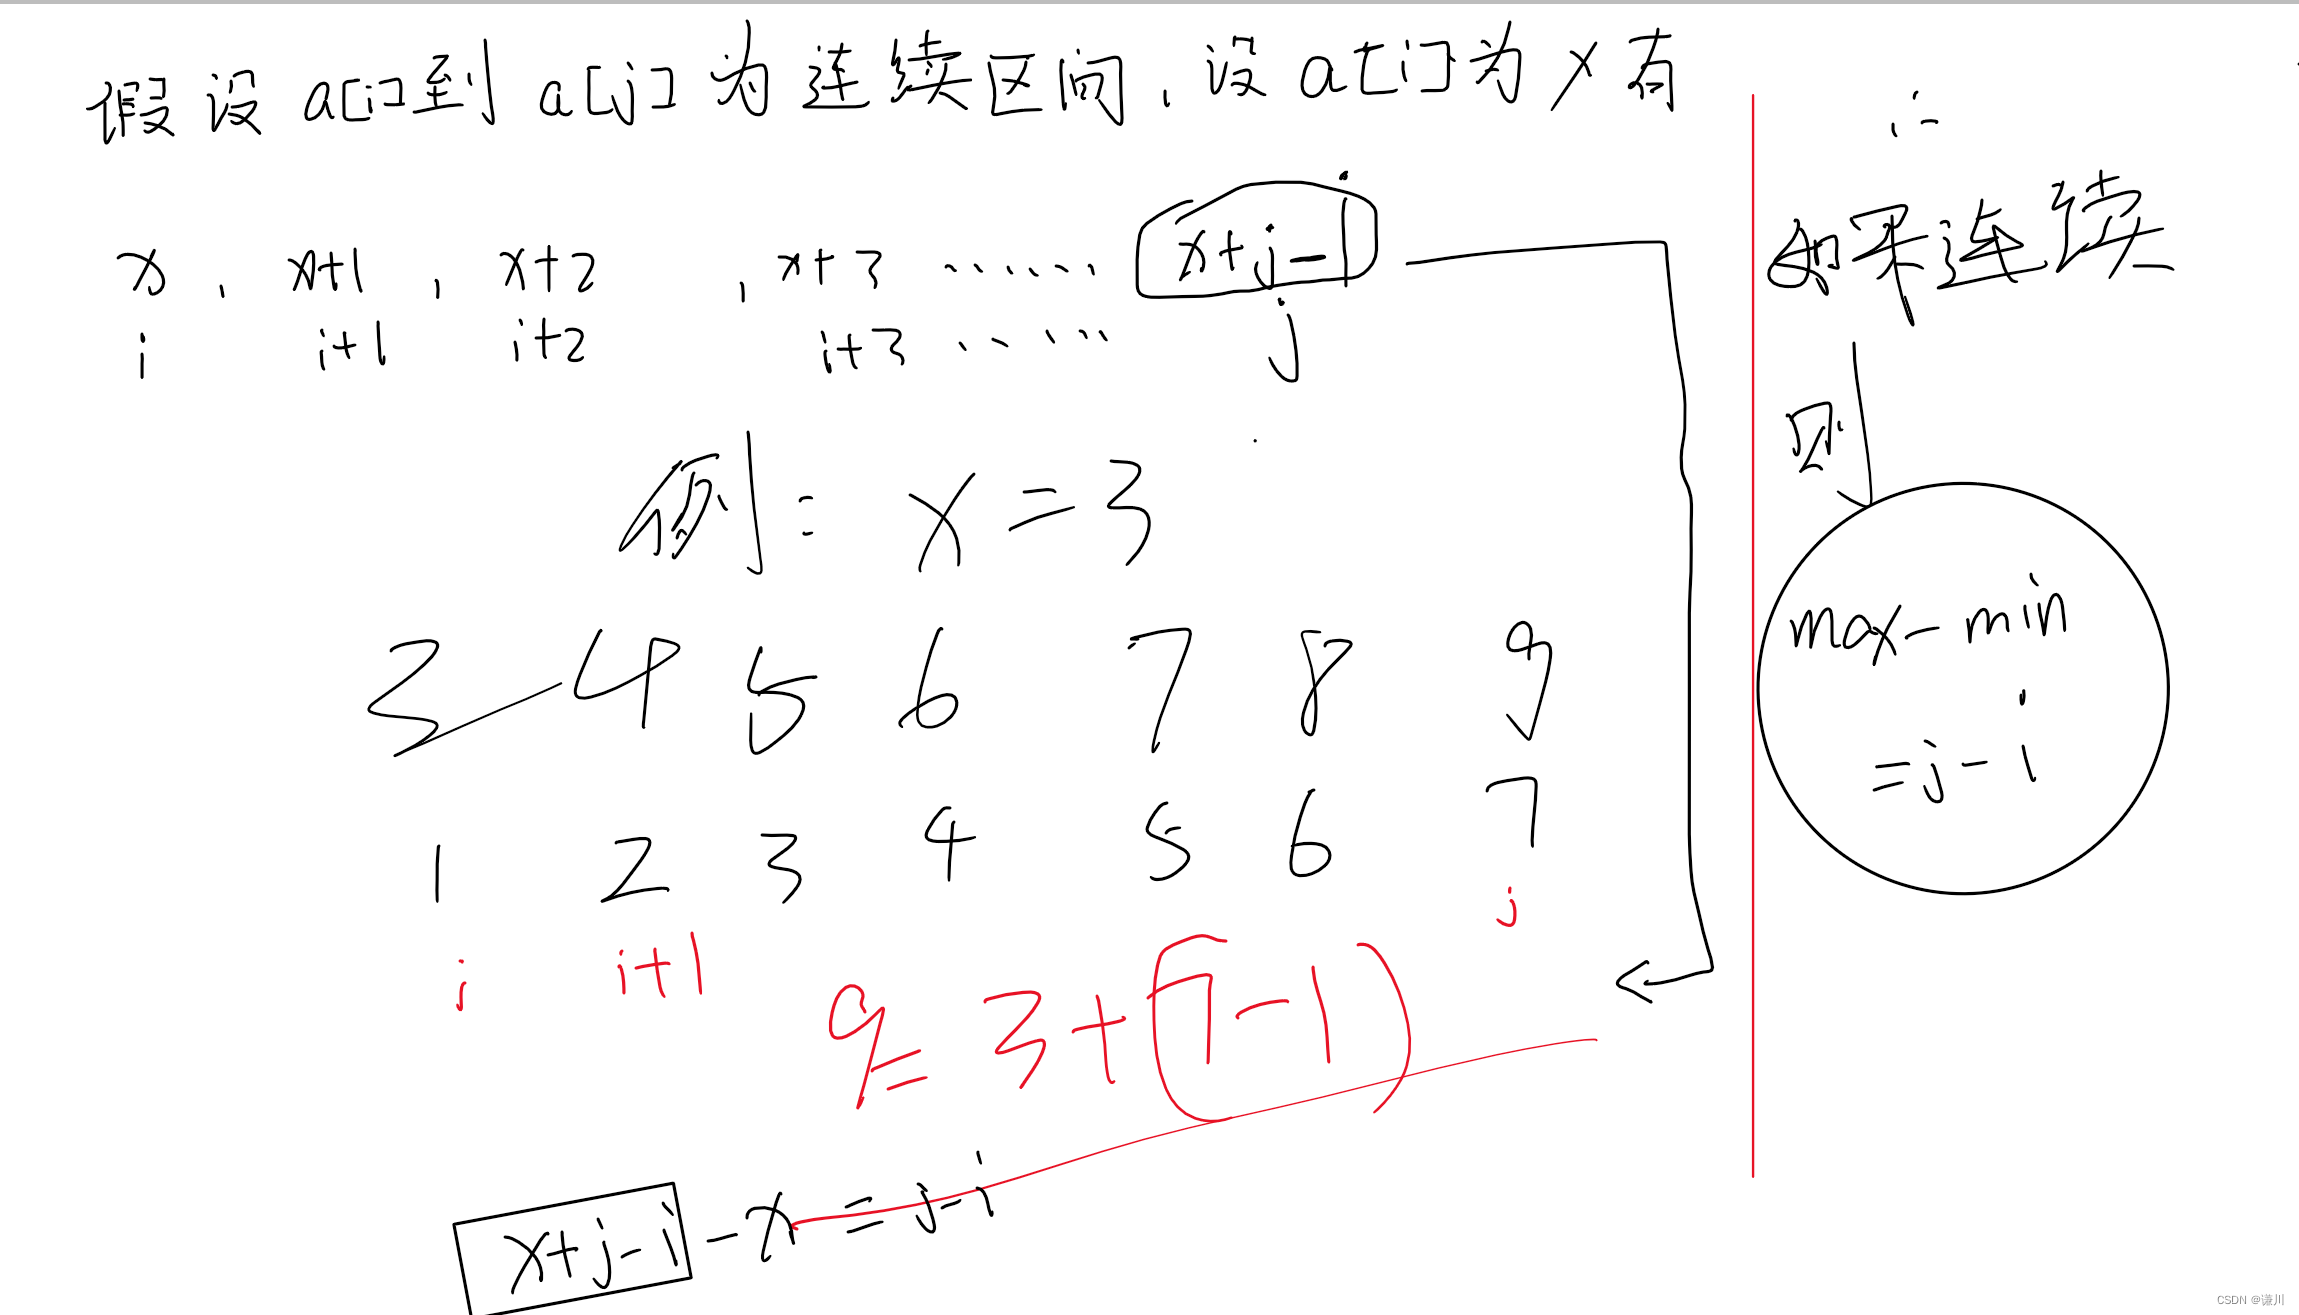 假设 a[i]到 a[j] 为连续区间,设 a[i]为 x 有
x , x+1 , x+2 , x+3 ······ x+j-i
i i+1 i+2 i+3 ······ j
例: x=3
3 4 5 6 7 8 9
1 2 3 4 5 6 7
i i+1 j
9=3+(7-1)
x+j-i -x=j-i
i-
如果连续
则
max-min
=j-i
CSDN @谦川